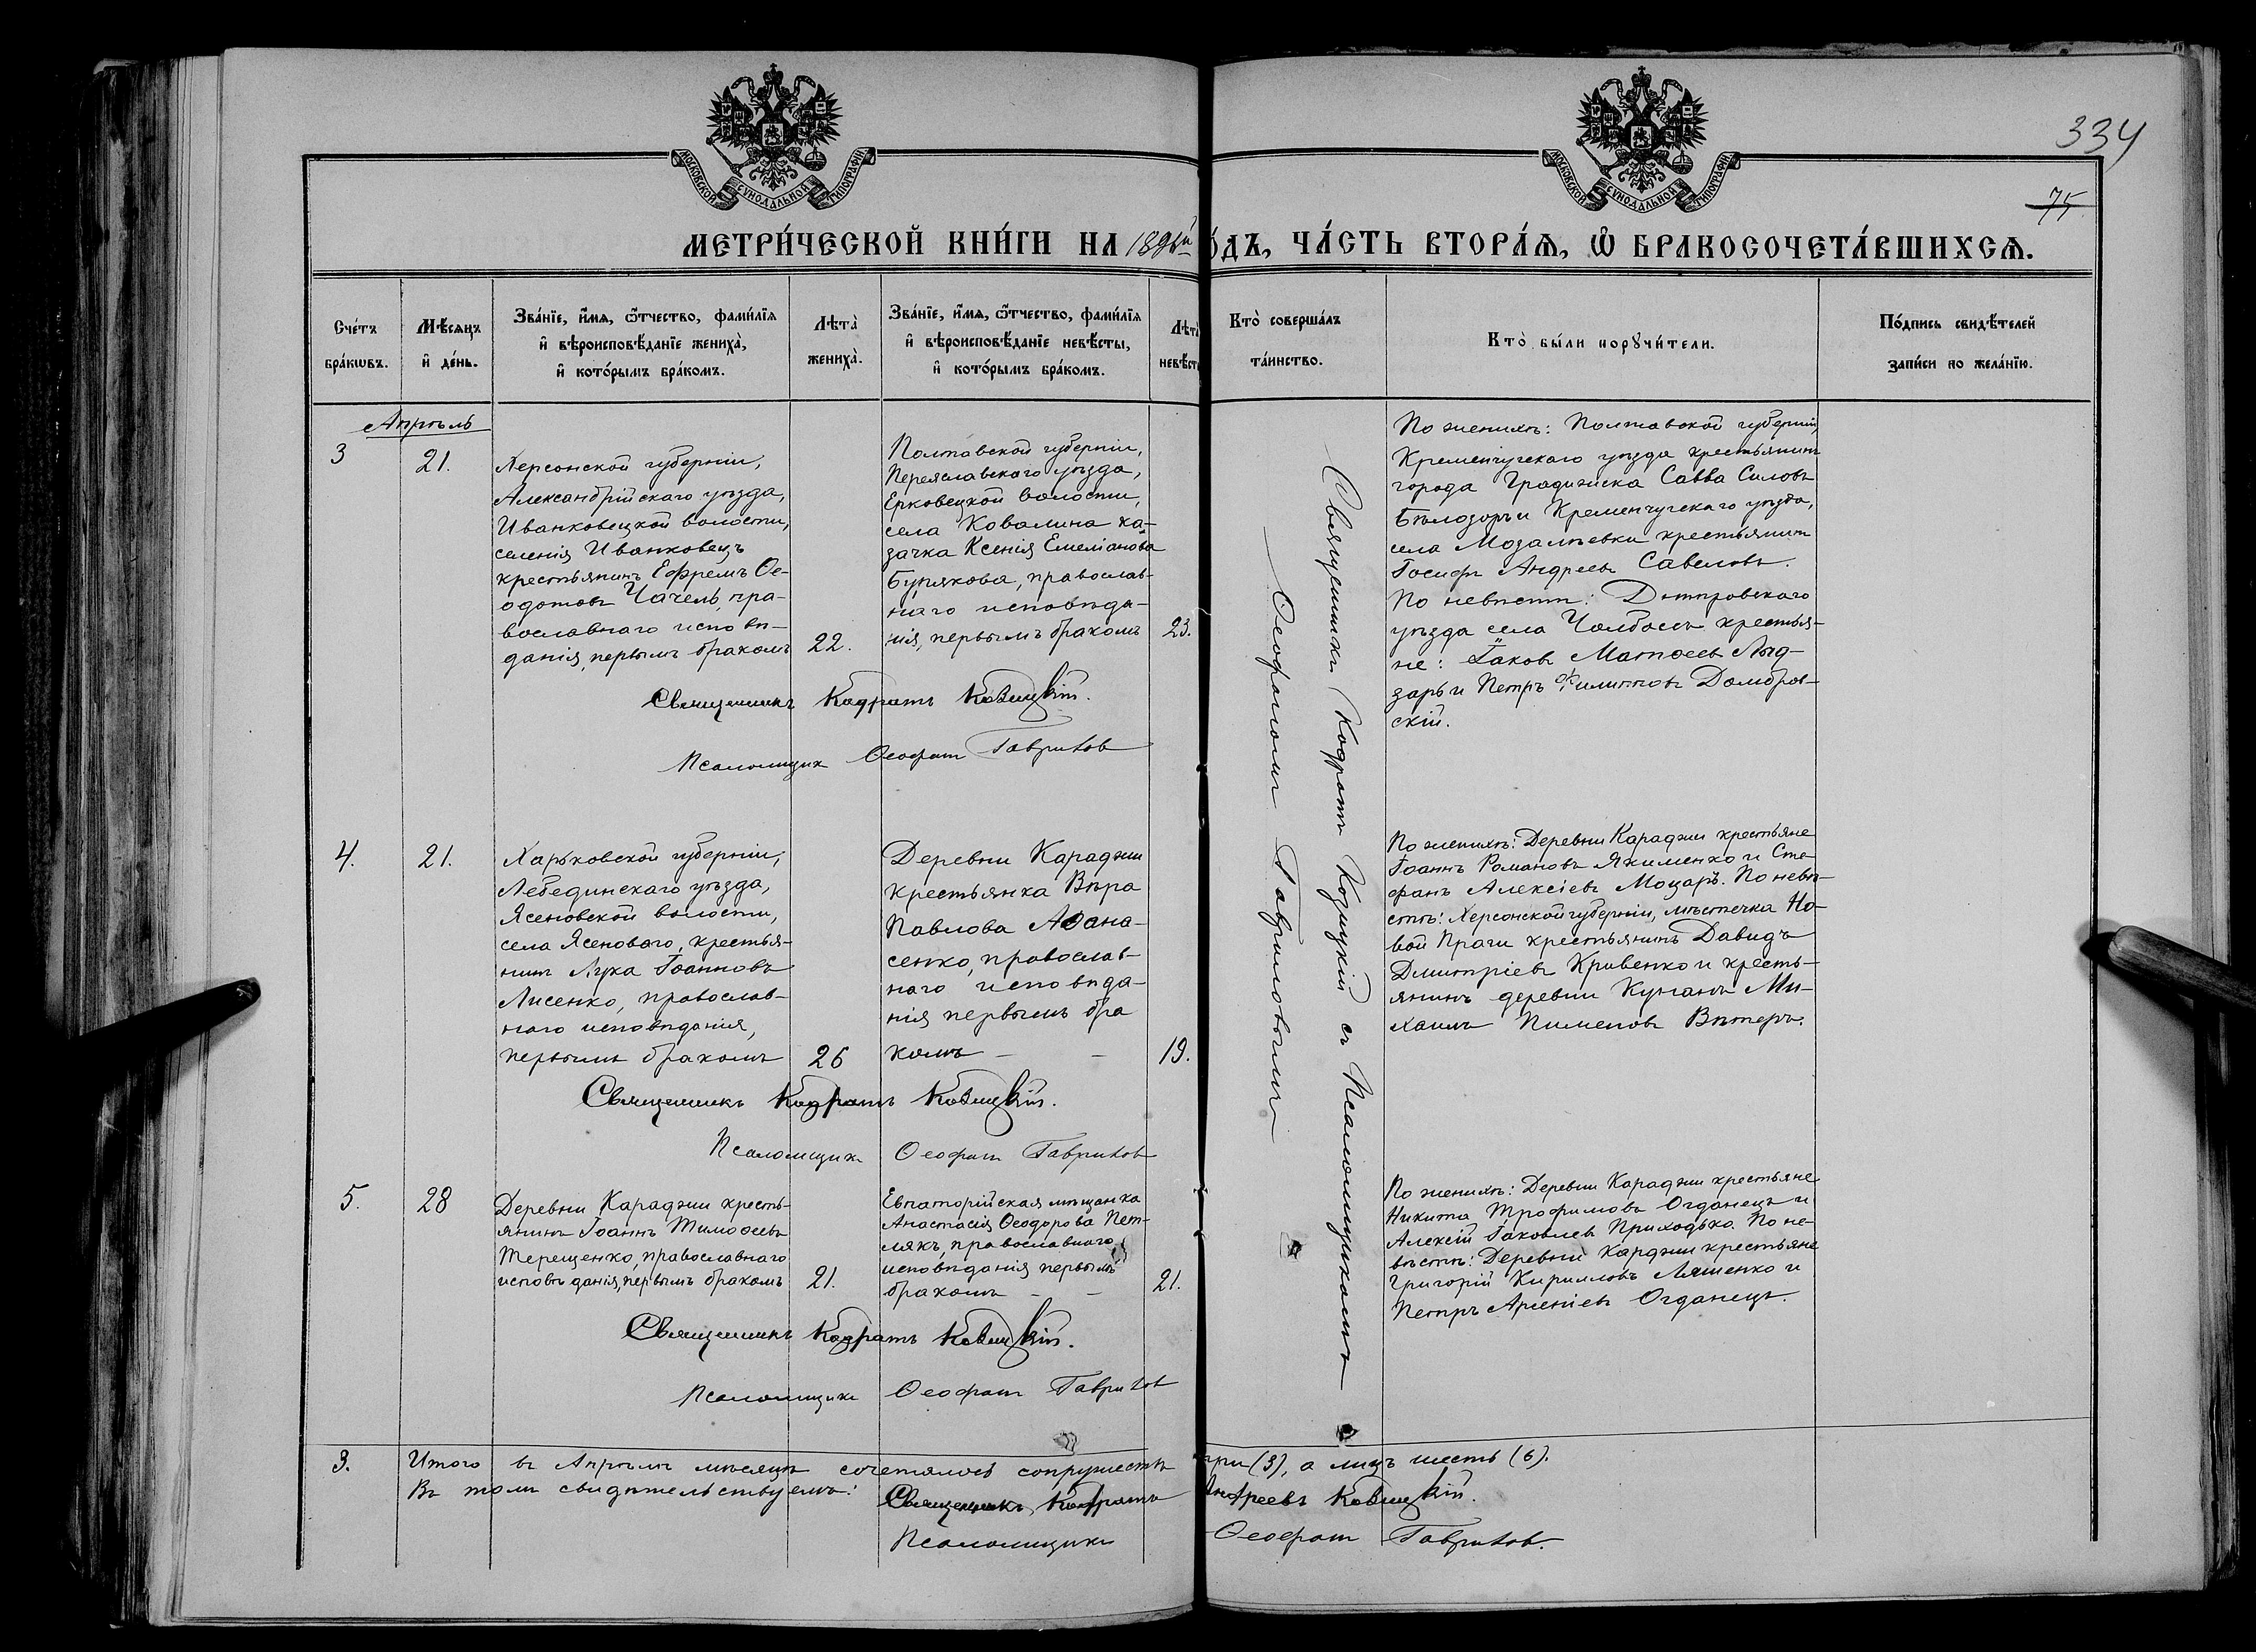 334
75
МОСКОВСКОЙ СУНОДАЛЬНОЙ ТИПОГРАФІИ
МОСКОВСКОЙ СУНОДАЛЬНОЙ ТИПОГРАФІИ
МЕТРИ́ЧЕСКОЙ КНИ́ГИ НА 189 О́ДЪ, ЧА́СТЬ ВТОРА́Ѧ, Ѽ БРАКОСОЧЕТА́ВШИХСѦ.
Сче́тъ
бра́кѡвъ.
Мѣ́сѧцъ
и҆ де́нь.
Зва́нїе, и҆́мѧ, ѻ҆́тчество, фами́лїѧ
и҆ вѣроисповѣ́данїе жениха̀,
и҆ кото́рымъ бра́комъ.
Лѣта̀
жениха̀.
Зва́нїе, и҆́мѧ, ѻ҆́тчество, фами́лїѧ
и҆ вѣроисповѣ́данїе невѣ́сты,
и҆ кото́рымъ бра́комъ.
Лѣта̀
невѣ́ст
Кто̀ соверша́лъ
та́инство.
Кто̀ бы́ли порꙋчи́тели.
По́дпись свидѣ́телей
запи́си по жела́нїю.
Апрѣль
3
21.
Херсонской губерніи,
Александрійскаго уѣзда,
Иванковецкой волости,
селенія Иванковецъ
крестьянинъ Ефремъ Ѳе-
одотовъ Чачель, пра-
вославнаго исповѣ-
данія, первымъ бракомъ
22.
Полтавской губерніи,
Переяславскаго уѣзда,
Ерковецкой волости,
села Ковалина ка-
зачка Ксенія Емеліанова
Бунякова, православ-
наго исповѣда-
нія, первымъ бракомъ
23.
Священникъ Кодратъ Козицкій.
Псаломщикъ Ѳеофанъ Гавриловъ
Священникъ Кодратъ Козицкій съ Псаломщикомъ
Ѳеофаномъ Гавриловымъ
По женихѣ: Полтавской губерніи,
Кременчугскаго уѣзда крестьянинъ
города Градижска Савва Силовъ
Бѣлозоръ и Кременчугскаго уѣзда,
села Мозалѣевки крестьянинъ
Іосифъ Андреевъ Савеловъ.
По невѣстѣ: Днѣпровскаго
уѣзда села Чолбасъ крестья-
не: Іаковъ Матѳеевъ Лыд-
зарь и Петръ Филипповъ Домбров-
скій.
4.
21.
Харьковской губерніи,
Лебединскаго уѣзда,
Ясеновской волости,
села Ясеноваго, крестья-
нинъ Лука Іоанновъ
Лисенко, православ-
наго исповѣданія,
первымъ бракомъ
26
Деревни Караджи
крестьянка Вѣра
Павлова Аѳана-
сенко, православ-
наго исповѣда-
нія первымъ бра
комъ – –
19.
Священникъ Кодратъ Козицкій.
Псаломщикъ Ѳеофанъ Гавриловъ
По женихѣ: Деревни Караджи крестьяне
Іоаннъ Романовъ Якименко и Сте-
фанъ Алексіевъ Моцарь. По невѣ-
стѣ: Херсонской губерніи, мѣстечка Но-
вой Праги крестьянинъ Давидъ
Димитріевъ Кривенко и кресть-
янинъ деревни Кунанъ Ми-
хаилъ Пименовъ Вѣтеръ.
5.
28
Деревни Караджи кресть-
янинъ Іоаннъ Тимоѳеевъ
Терещенко, православнаго
исповѣданія, первымъ бракомъ
21.
Евпаторійская мѣщанка
Анастасія Ѳеодорова Пет-
лякъ, православнаго
исповѣданія первымъ
бракомъ – –
21.
Священникъ Кодратъ Козицкій.
Псаломщикъ Ѳеофанъ Гавриловъ
По женихѣ: Деревни Караджи крестьяне
Никита Трофимовъ Огданецъ и
Алексій Іаковлевъ Приходько. По не-
вѣстѣ: Деревни Карджи крестьяне
Григорій Кирилловъ Ляшенко и
Петръ Арсеніевъ Огданецъ.
3.
Итого въ Апрѣлѣ мѣсяцѣ сочеталось супружествъ три (3), а лицъ шесть (6).
Въ томъ свидѣтельствуемъ:
Священникъ Кодратъ Андреевъ Козицкій.
Псаломщикъ Ѳеофанъ Гавриловъ.